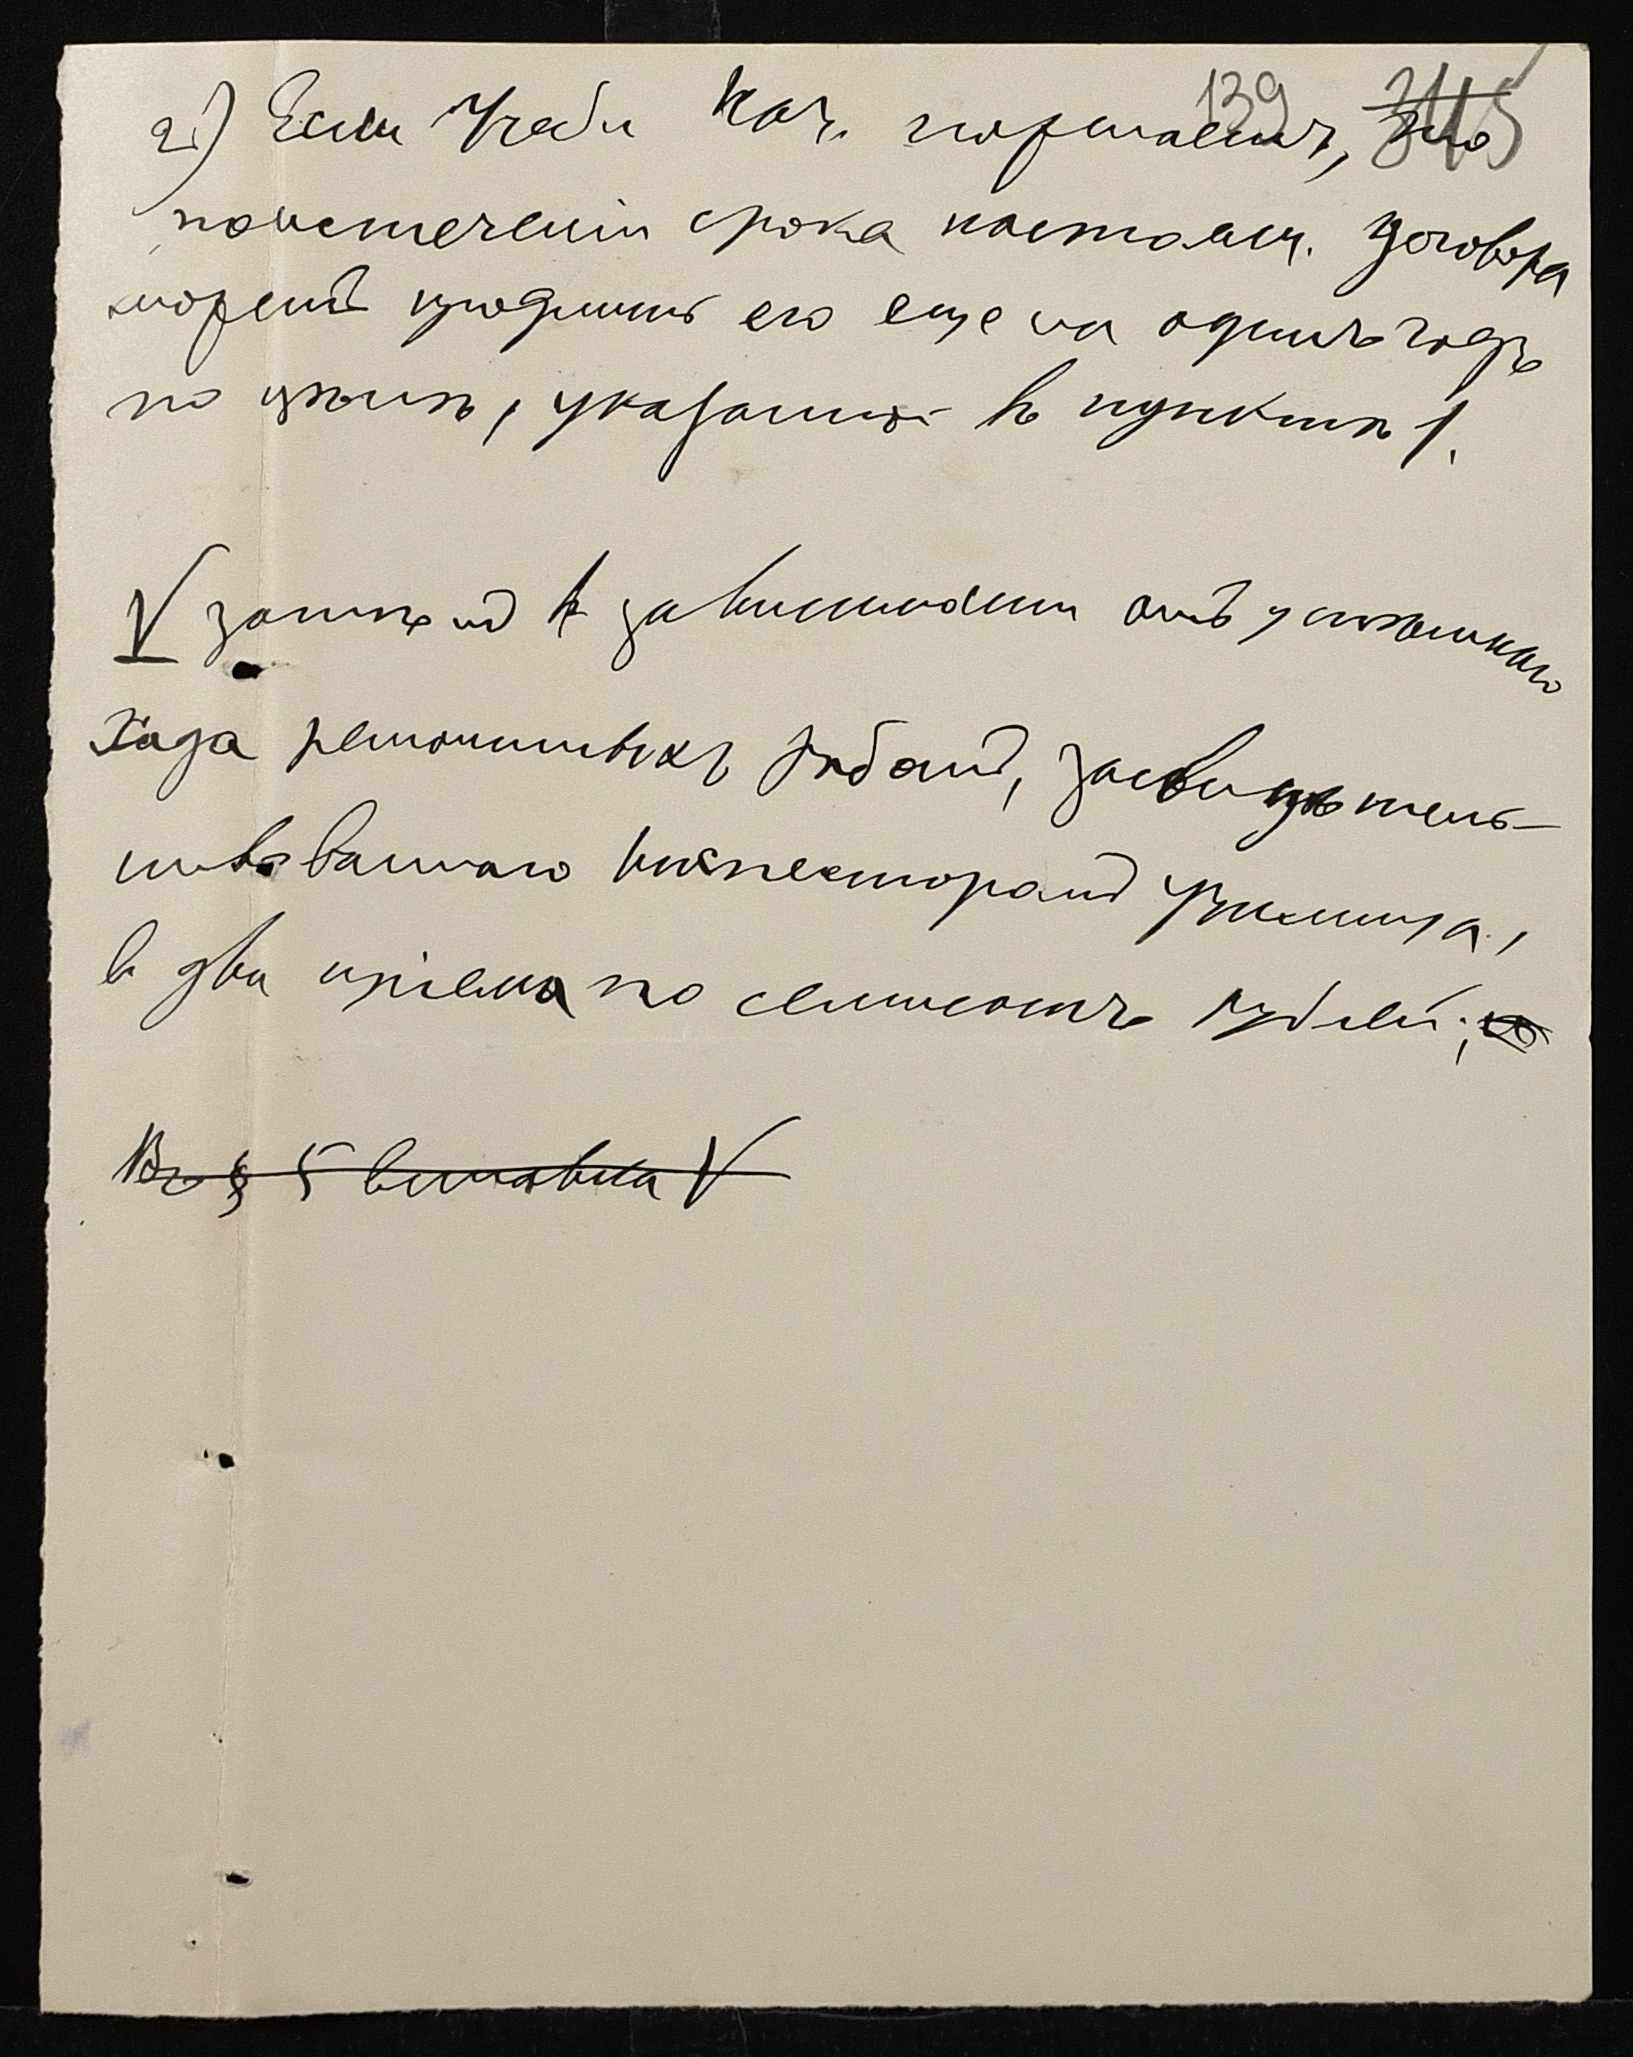 139 345
2) Если Учебн. Нач. пожелаетъ, то
по истеченiи срока настоящ. договора
можетъ продлить его еще на одинъ годъ
по цѣнѣ, указанной въ пунктѣ 1.
V затѣмъ в зависимости отъ успѣшнаго
хода ремонтныхъ работъ, засвидѣтель-
ствованнаго инспекторомъ училища,
в два прiема по семисотъ рублей;
Въ § 5 вставка V